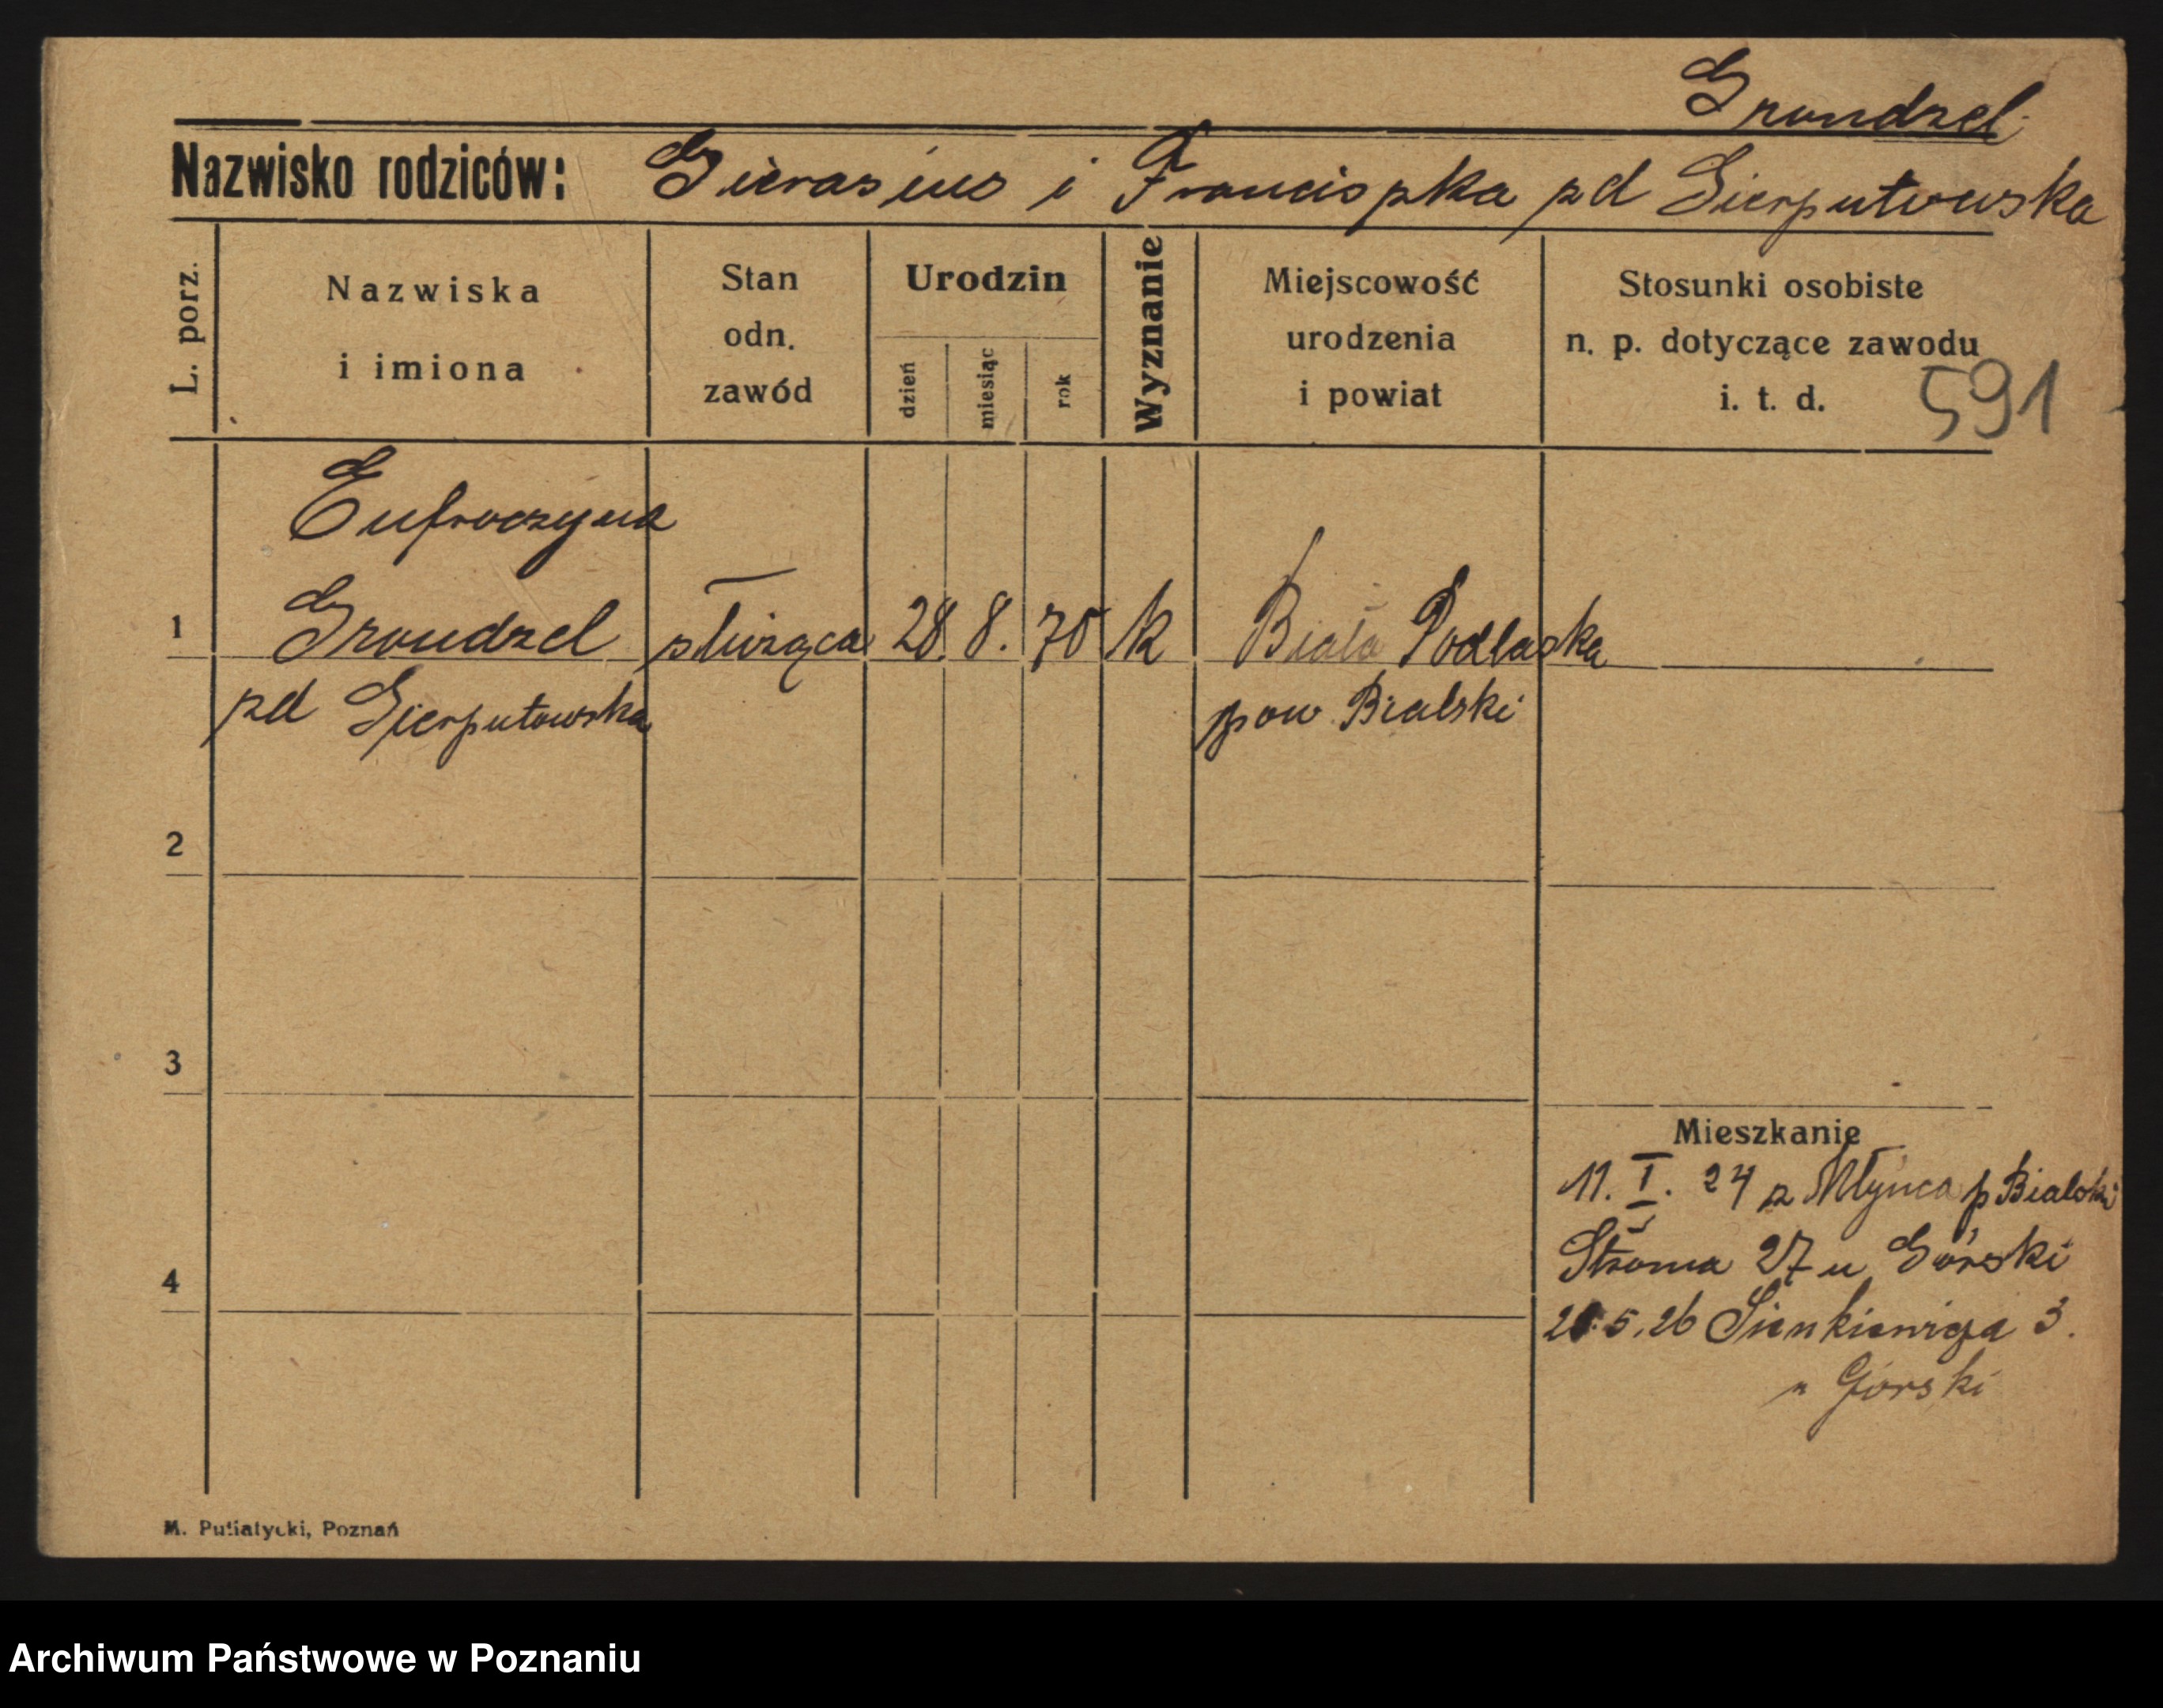 Grondzel
Nazwisko rodziców: Gierasius i Franciszka zd Sierputowska
L. porz.
Nazwiska
i imiona
Stan
odn.
zawód
Urodzin
dzień
miesiąc
rok
Wyznanie
Miejscowość
urodzenia
i powiat
Stosunki osobiste
n. p. dotyczące zawodu
i. t. d.
591
Eufroczyna
1 Grondzel służąca 28. 8. 70 k Biała Podlaska
zd Sierputowska pow Bialski
2
3
Mieszkanie
11. I. 24 z Młyńca p Bialski
Stroma 27 u Górski
4
5. 26 Sienkiewicza 3.
u Górski
M. Putiatycki, Poznań
Archiwum Państwowe w Poznaniu